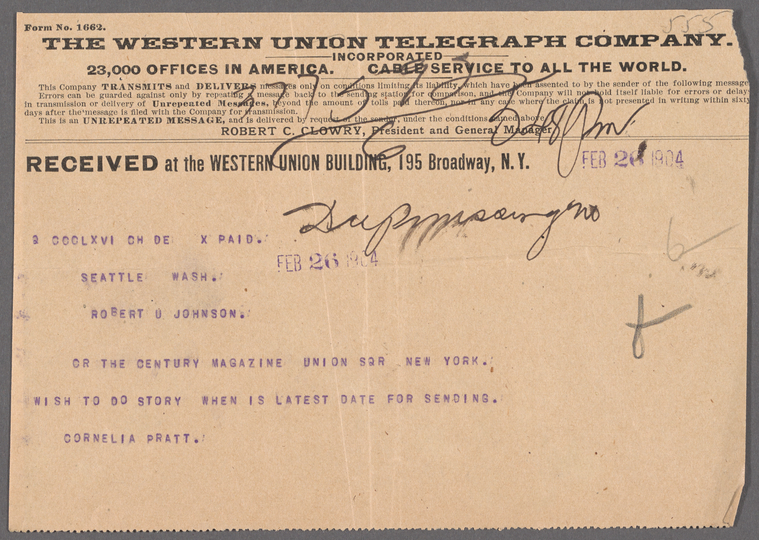 Form No. 1662.
555
THE WESTERN UNION TELEGRAPH COMPANY.
INCORPORATED
23,000 OFFICES IN AMERICA. CABLE SERVICE TO ALL THE WORLD.
This Company TRANSMITS and DELIVERS messages only on conditions limiting its liability, which have been assented to by the sender of the following message
Errors can be guarded against only by repeating a message back to the sending station for comparison, and the Company will not hold itself liable for errors or delays
in transmission or delivery of Unrepeated Messages, beyond the amount of tolls paid thereon, nor in any case where the claim is not presented in writing within sixty
days after the message is filed with the Company for transmission.
This is an UNREPEATED MESSAGE, and is delivered by request of the sender, under the conditions named above.
ROBERT C. CLOWRY, President and General Manager
RECEIVED at the WESTERN UNION BUILDING, 195 Broadway, N. Y.
FEB 26 1904
9 CCCLXVI CH DE X PAID.
FEB 26 1904
SEATTLE WASH.
ROBERT U JOHNSON.
CR THE CENTURY MAGAZINE UNION SQR NEW YORK.
WISH TO DO STORY WHEN IS LATEST DATE FOR SENDING.
CORNELIA PRATT.